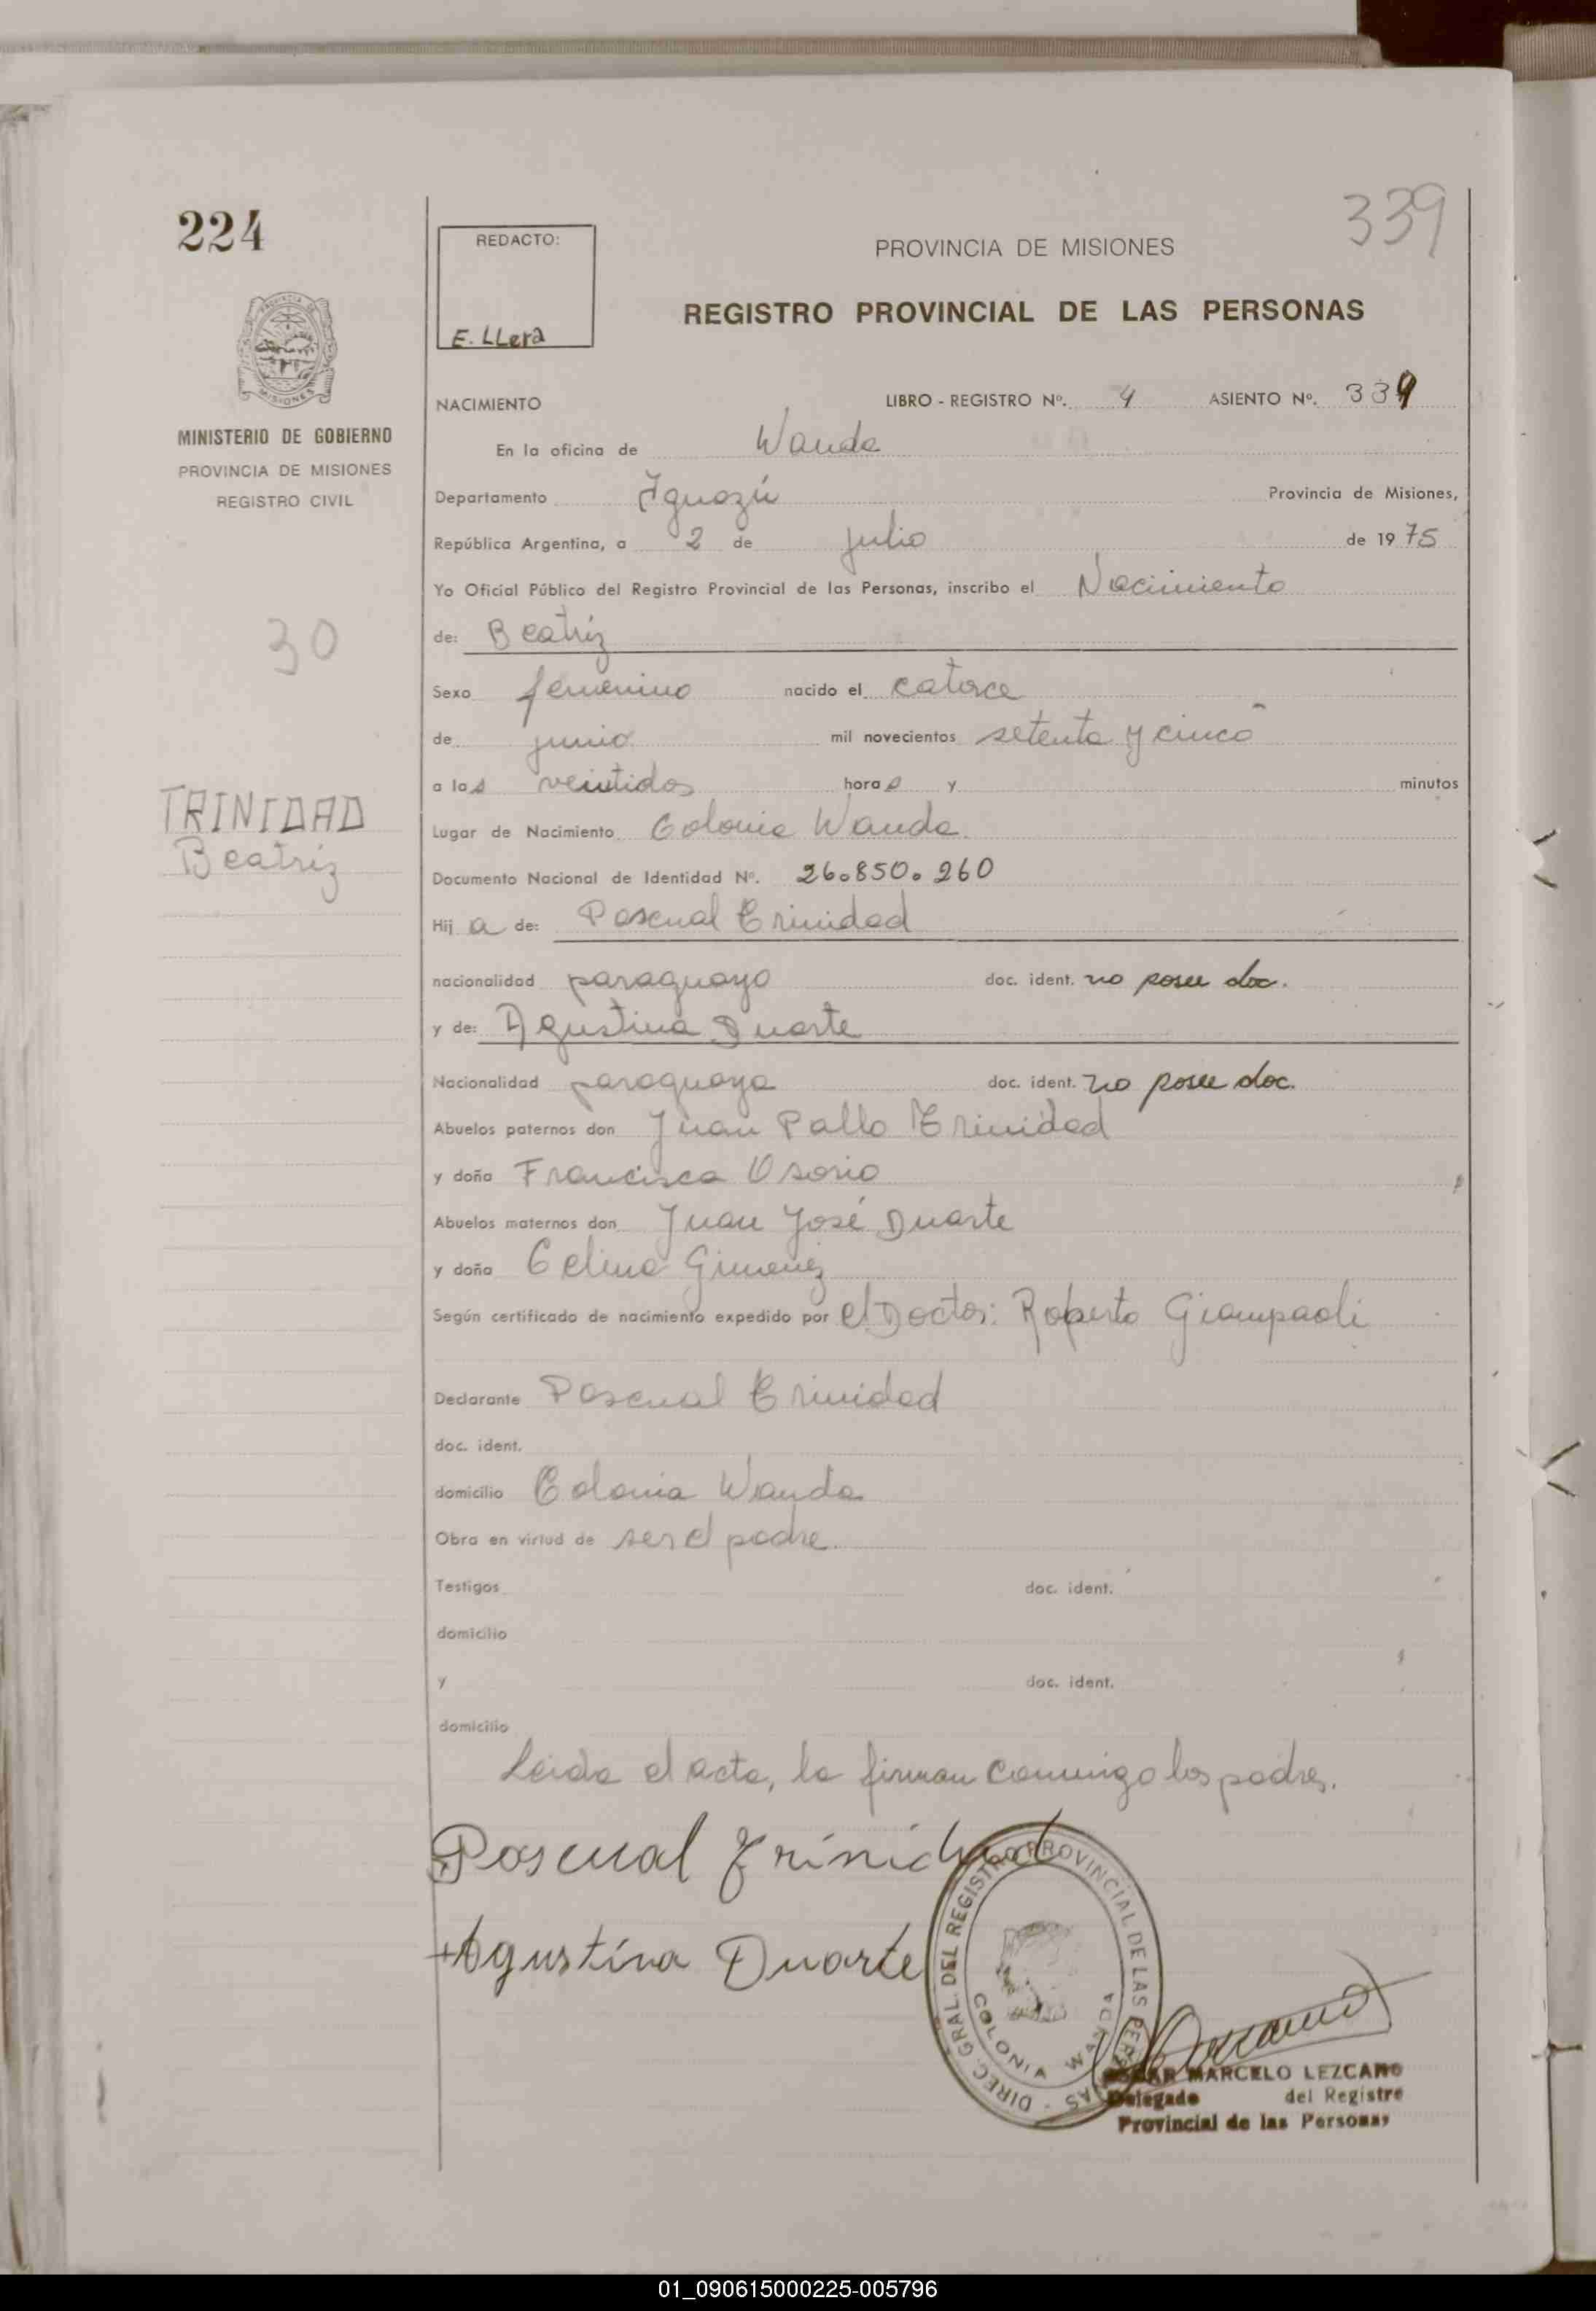 224
339
REDACTO:
E. LLera
PROVINCIA DE MISIONES
REGISTRO PROVINCIAL DE LAS PERSONAS
MISIONES
MINISTERIO DE GOBIERNO
PROVINCIA DE MISIONES
REGISTRO CIVIL
30
TRINIDAD
Beatriz
NACIMIENTO LIBRO - REGISTRO Nº. 4 ASIENTO Nº. 339
En la oficina de Wanda
Departamento Iguazú Provincia de Misiones,
República Argentina, a 2 de julio de 1975
Yo Oficial Público del Registro Provincial de las Personas, inscribo el Nacimiento
de: Beatriz
Sexo femenino nacido el catorce
de junio mil novecientos setenta y cinco
a las veintidos horas y minutos
Lugar de Nacimiento Colonia Wanda
Documento Nacional de Identidad Nº. 26.850.260
Hija de: Pascual Trinidad
nacionalidad paraguayo doc. ident. no posee doc.
y de: Agustina Duarte
Nacionalidad paraguaya doc. ident. no posee doc.
Abuelos paternos don Juan Pallo Trinidad
y doña Francisca Osorio
Abuelos maternos don Juan José Duarte
y doña Celina Gimenez
Según certificado de nacimiento expedido por el Doctor: Roberto Giampaoli
Declarante Pascual Trinidad
doc. ident.
domicilio Colonia Wanda
Obra en virtud de ser el padre.
Testigos doc. ident.
domicilio
y doc. ident.
domicilio
Leida el acta, la firman conmigo los padres.
Pascual Trinidad
Agustina Duarte
DIREC. GRAL. DEL REGISTRO PROVINCIAL DE LAS PERSONAS
COLONIA WANDA
OSCAR MARCELO LEZCANO
Delegado del Registro
Provincial de las Personas
01_090615000225-005796